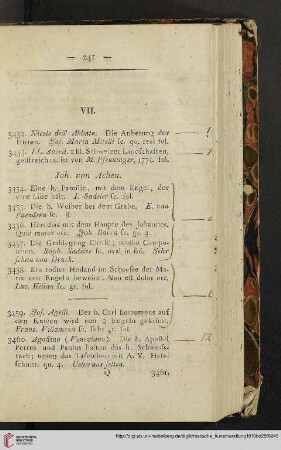 — 241 —
VII.
3452. Nicolo dell' Abbate. Die Anbetung der
Hirten. Jos. Maria Mitelli sc. qu. roal fol.
2 kl. Schweizer Landschaften,
geistreich radirt von M. Pfenninger, 1771. fol.
Joh. von Achen.
3454. Eine h. Familie, mit dem Engel, der
eine Lilie hält. I. Sadeler sc. fol.
3455. Die h. Weiber bei dem Grabe. E. van
Paendren sc. 8.
3456. Herodias mit dem Haupte des Johannes.
Quid mater etc. Joh. Barra sc. gr. 4.
3457. Die Grablegung Christi; reiche Compo-
sition. Raph. Sadeler sc. in fol. Sehr
schön von Druck.
3458. Ein todter Heiland im Schoosse der Ma-
ria von Engeln beweint: Non est dolor etc.
Luc. Kilian sc. gr. fol.
3459. Jos. Agelli. Der h. Carl Borromeus auf
den Knieen wird von 2 Engeln gekrönt,
Franc. Villamena sc. Sehr gr. fol.
3460. Agostino (Veneziano). Die h. Apostel
Petrus und Paulus halten das h. Schweiss-
tuch; neben das Täfelchen mit A. V. Holz-
schnitt. qu. 4. Ueberaus selten.
Q 3461.
12